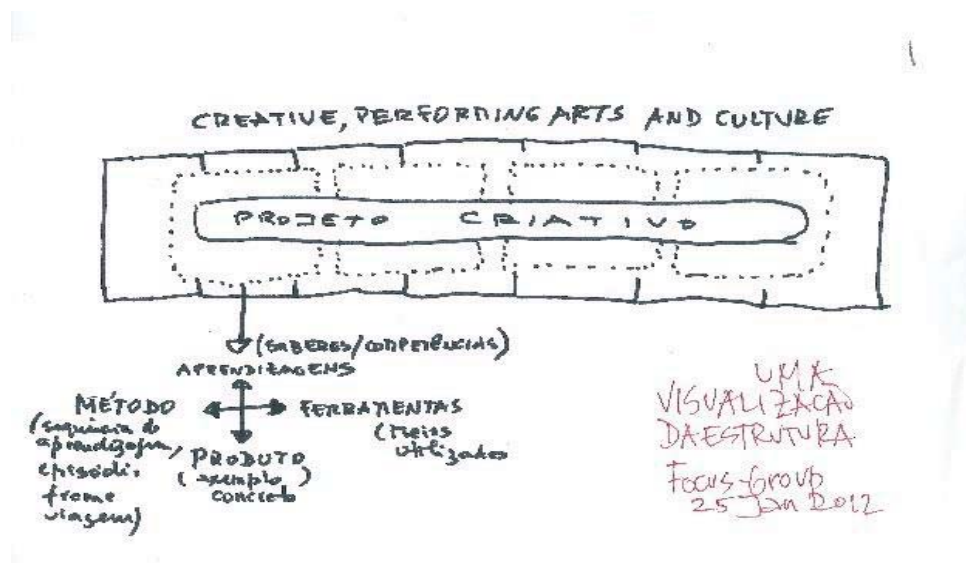 1
CREATIVE, PERFORMING ARTS AND CULTURE
PROJETO CRIATIVO
(SABERES/COMPETÊNCIAS)
APRENDIZAGENS
MÉTODO
(sequência de
aprendizagem,
episódio,
frame
viagem)
FERRAMENTAS
(Meios
utilizados
PRODUTO
(exemplo)
concreto
UMA
VISUALIZAÇÃO
DA ESTRUTURA
Focus-Group
25 Jan 2012